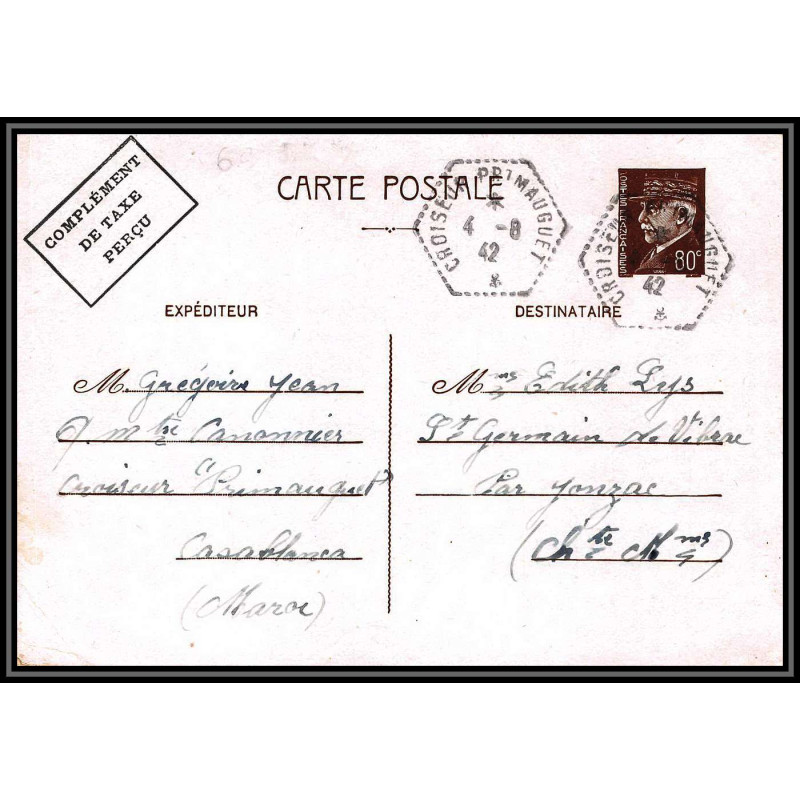 COMPLÉMENT
DE TAXE
PERÇU
CARTE POSTALE
CROISEUR PRIMAUGUET
4 -8
42
POSTES FRANÇAISES
80c
CROISEUR PRIMAUGUET
42
EXPÉDITEUR
M. Grégoire Jean
Q. Mtre Canonnier
Croiseur "Primauguet"
Casablanca
(Maroc)
DESTINATAIRE
M ms Edith Lys
St Germain de Vibrac
Par Jonzac
(Chte Mme)